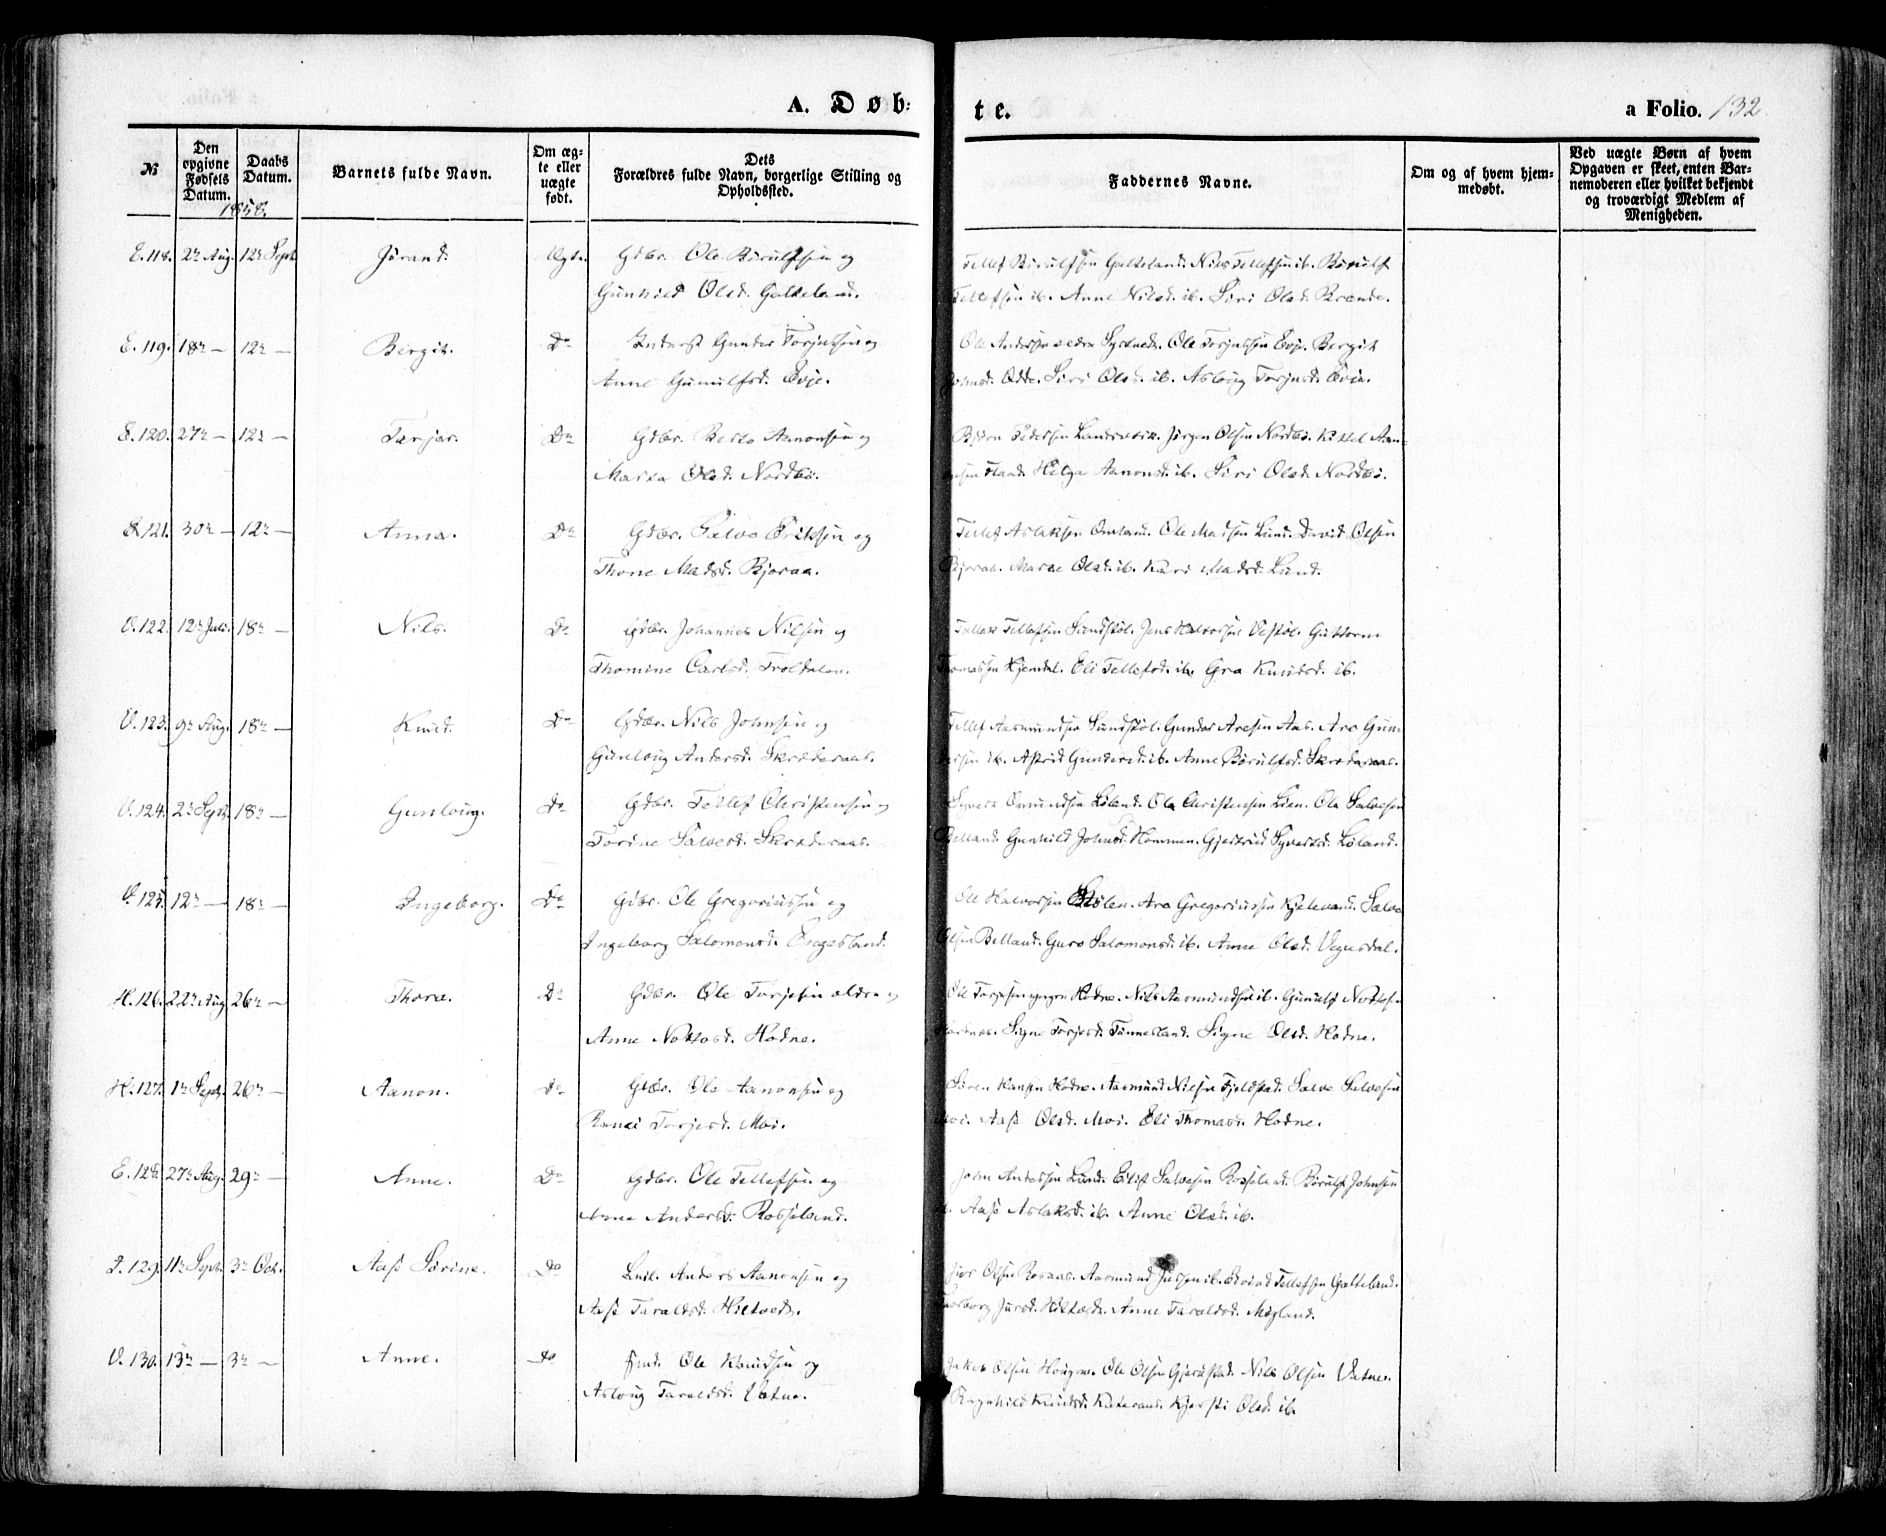 A. Døb-
te.
a Folio. 132
№
Den opgivne Fødsels Datum.
Daabs Datum.
Barnets fulde Navn.
Om ægte eller uægte født.
Dets Forældres fulde Navn, borgerlige Stilling og Opholdssted.
Faddernes Navne.
Om og af hvem hjemmedøbt.
Ved uægte Børn af hvem Opgaven er skeet, enten Barnemoderen eller hvilket bekjendt og troværdigt Medlem af Menigheden.
1858.
E. 118. 2n Aug. 12n Sept. Jørand. Ægte. Gdbr. Ole Børulfsen og
Gunhild Olsd. Galteland.
Tellef Børulfsen Galteland. Nils Tellefsen ib. Børulf
Tellefsen ib. Anne Nilsd. ib. Siri Olsd.
E. 119. 18n — 12n — Birgit. Do Inderst Gunder Torjussen og
Anne Gunulfsd. Evje.
Ole Andersen Ole Torjussen Evje. Bergit
Johnsd. Odde. Siri Olsd. ib. Asloug Torjusd. Evje.
E. 120. 27n — 12n — Tarjer. Do Gdbr. Aanonsen og
Olsd. Nordbø.
Bjørn Pedersen Landsverk. Jørgen Olsen Nordbø. Kittel Aanonsen
Helga Aanonsd. ib. Siri Olsd. Nordbø.
E. 121. 30n — 12n — Anna. Do Gdbr. Salve Eriksen og
Thone Madsd. Bjoraa.
Tellef Aslaksen Omland. Ole Madsen Lund. David Olsen
Bjoraa. Olsd. ib. Kari Madsd. Lund.
V. 122. 12n Juli. 18n — Nils. Do Gdbr. Johannes Nilsen og
Thomine Carlsd. Troldalen.
Tellefsen Sundstøl. Jens Halvorsen Vestøl. Guttorm
Thomassen Hjemdal. Eli Tellefsd. ib. Gro Knudsd. ib.
V. 123. 9n Aug. 18n — Knud. Do Gdbr. Nils Johnsen og
Gunloug Andersd. Skræderaas.
Tellef Aasmundsen Sundstøl. Gunder Aresen Aas. Are Gundersen
ib. Astrid Gundersd. ib. Anne Børulfsd. Skræderaas.
V. 124. 2n Sept. 18n — Gunloug. Do Gdbr. Tellef Christensen og
Torine Salvesd. Skræderaas.
Syvert Omundsen Løland. Ole Christensen Lien. Ole Salvesen
Belland. Gunhild Johnsd. Hommen. Gjertrud Syvertsd. Løland.
V. 125. 12n — 18n — Ingeborg. Do Gdbr. Ole Gregoriussen og
Ingeborg Salomonsd. Engesland.
Ole Halvorsen StøLen. Are Gregoriussen Kjeleand. Salve
Olsen Belland. Guro Salomonsd. ib. Anne Olsd. Vegusdal.
H. 126. 22n Aug. 26n — Thore. Do Gdbr. Ole Torjesen ældre og
Anne Nottosd. Hodne.
Ole Torjesen yngre Hodne. Nils Aasmundsen ib. Gunulf Nottosen
Signe Torjesd. Tønnesland. Signe Olsd. Hodne.
H. 127. 1n Sept. 26n — Aanon. Do Gdbr. Ole Aanonsen og
Torjesd. Moi.
Søren Hansen Hodne. Aasmund Nilsen Fjeldstad. Salve Salvesen
Moi. Aase Olsd. Moi. Eli Thomasd. Hodne.
E. 128. 27n Aug. 29n — Anne. Do Gdbr. Ole Tellefsen og
Anne Andersd. Rosseland.
John Andersen Lund. Eilif Salvesen Rosseland. Børulf Johnsen
ib. Aase Aslaksd. ib. Anne Olsd. ib.
I. 129. 11n Sept. 3n Oct. Aase Sørine. Do Leil. Anders Aanonsen og
Aase Taraldsd. Hiltveit.
Olsen Rosaas. Aasmund ib. Eivind Tellefsen Galteland.
Anne Taraldsd. Møgland.
V. 130. 13n — 3n — Anne. Do Ole Knudsen og
Asloug Taraldsd. Vatne.
Jakob Olsen Hougne. Ole Olsen Gjerustad. Nils Olsen Vatne.
Ragnhild Knudsd. Kjersti Olsd. ib.